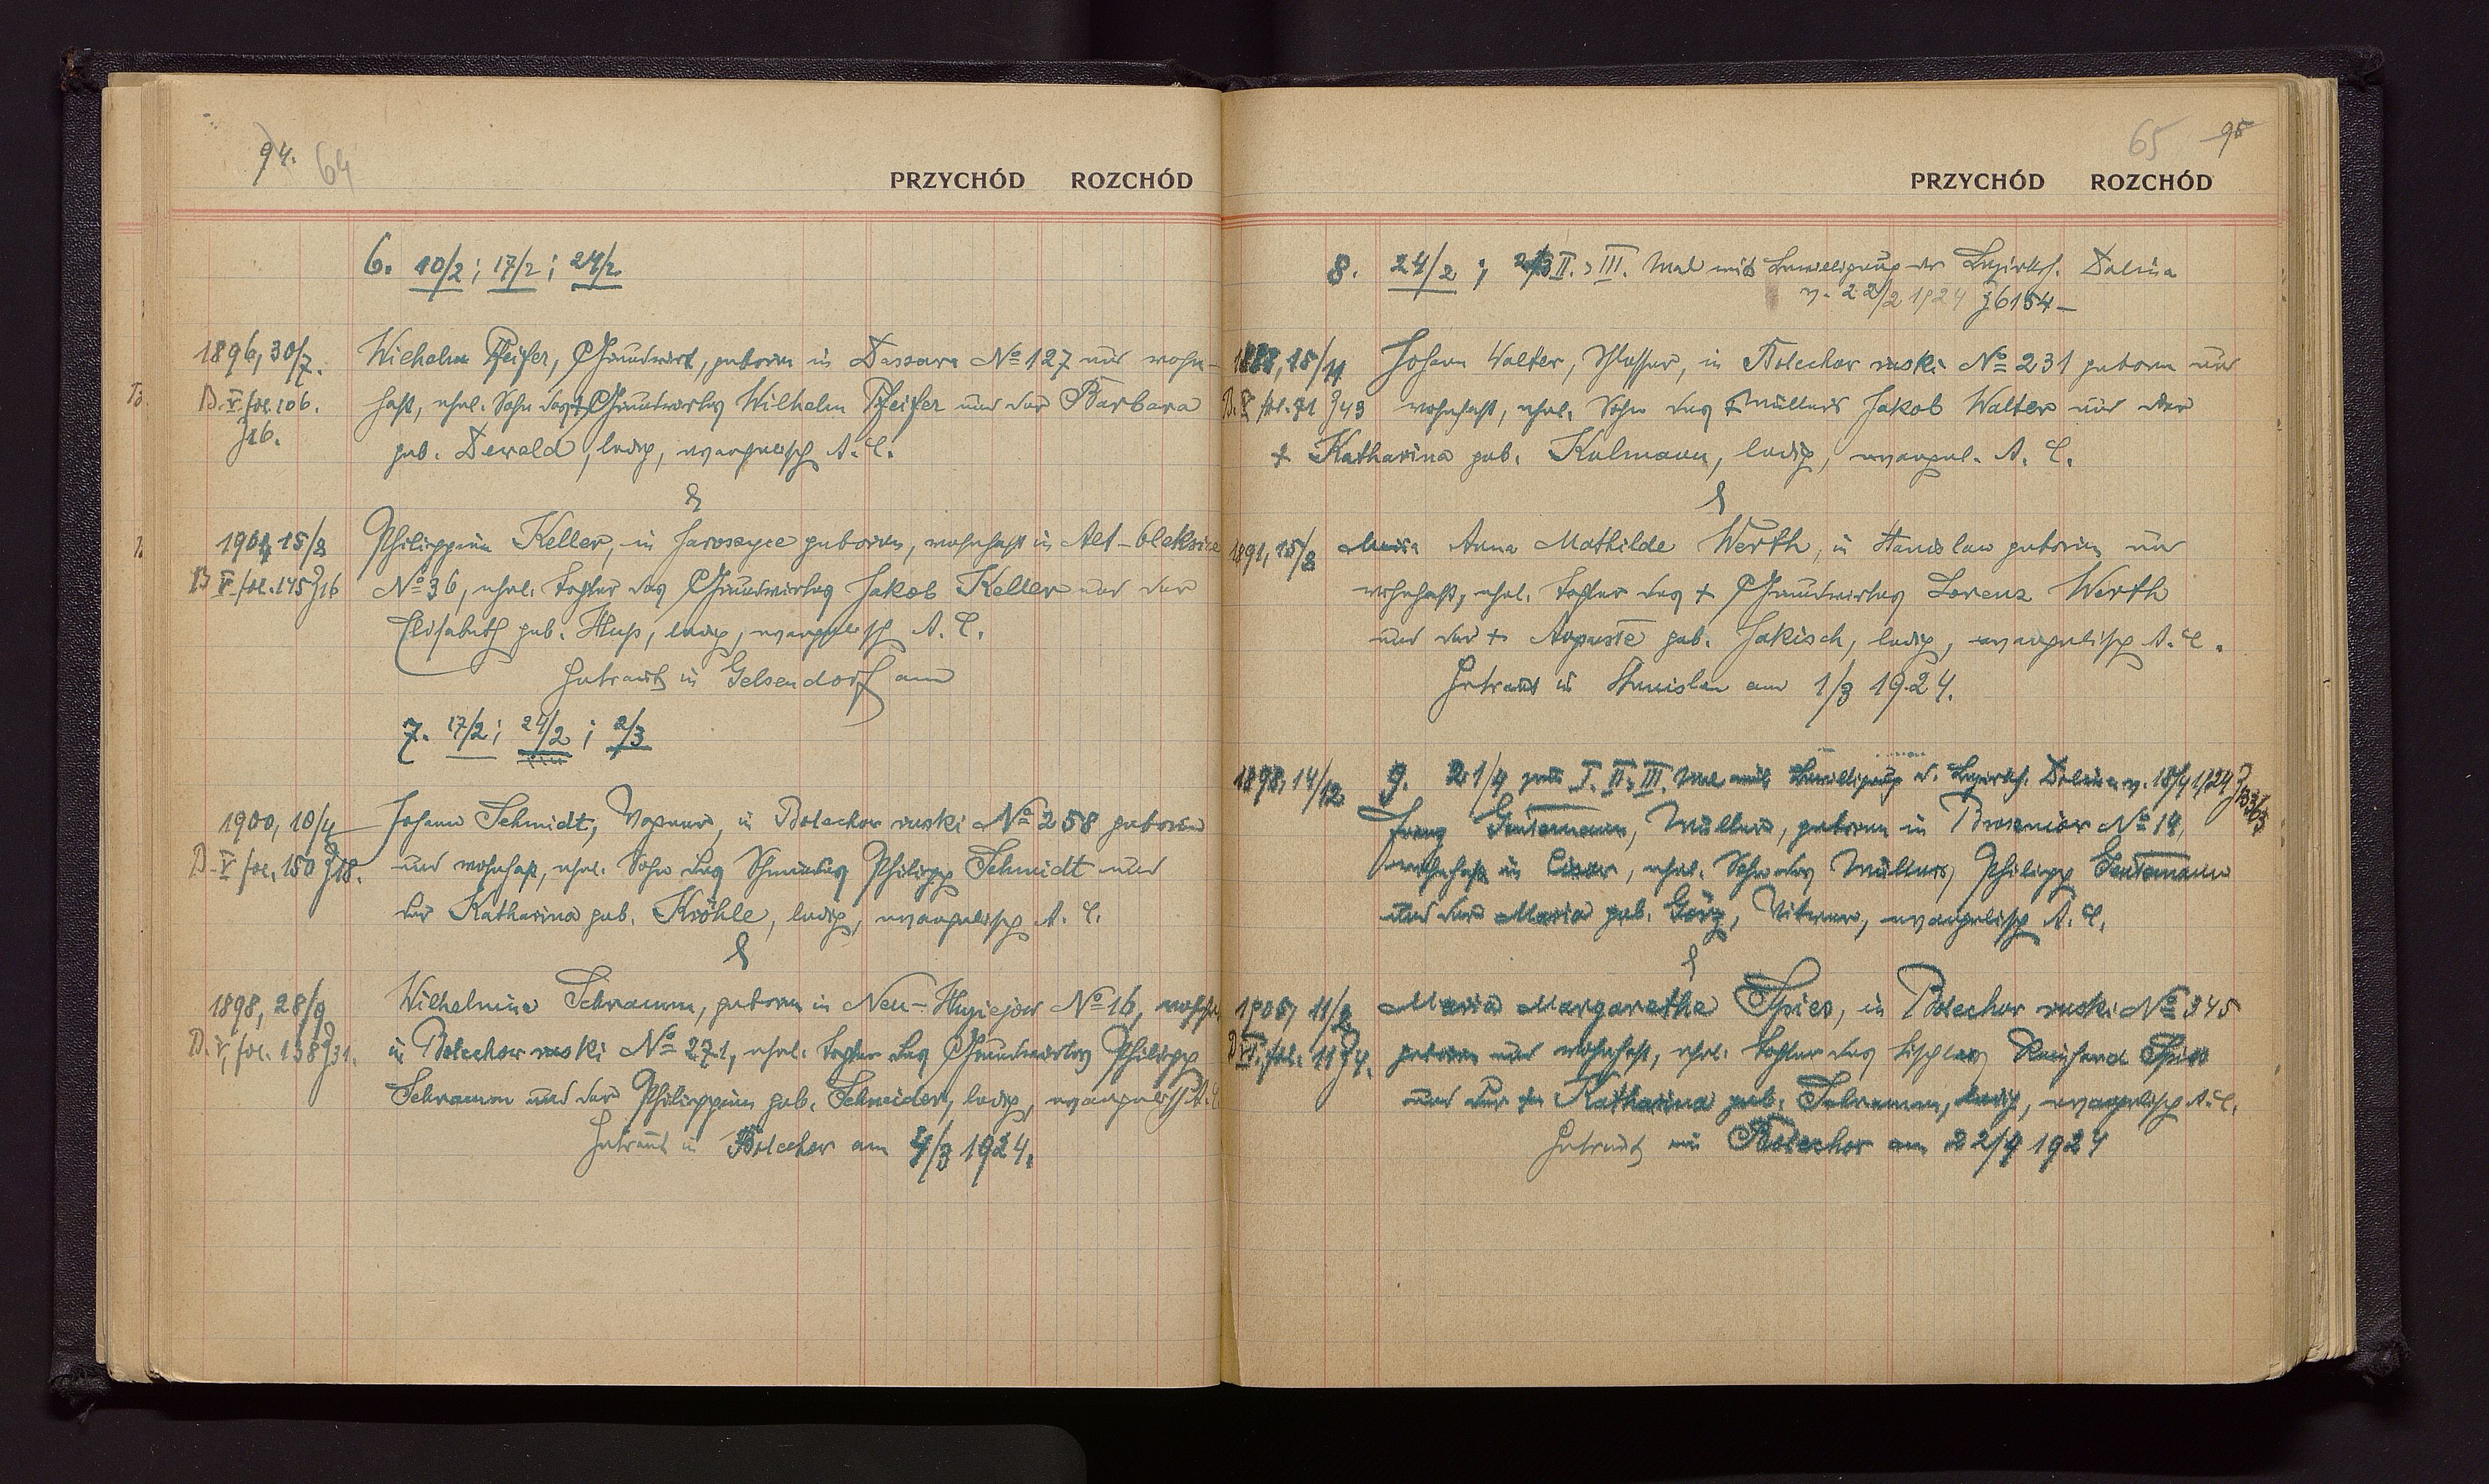 94. 64
PRZYCHÓD ROZCHÓD
6. 10/2; 17/2; 24/2.
1896, 30/7. Wilhelm Pfeifer, Grundwirt, geboren in Dassava № 127 und wohn-
B. V. fol. 106. haft, ehel. Sohn des + Grundwirtes Wilhelm Pfeifer und der Barbara
J 16. geb. Dewald, ledig, evangelisch A. C.
&
1904, 15/8 Philippine Keller, in geboren, wohnhaft in Alt-Oleksice
B V fol. 145 J 16 № 36, ehel. Tochter des Grundwirtes Jakob Keller und der
Elisabeth geb. Hup, ledig, evangelisch A. C.
Getraut in Gelsendorf am
7. 17/2; 24/2; 2/3
1900, 10/4 Johann Schmidt, Wagner, in Bolechov ruski № 258 geboren
B. V fol. 150 J 18. und wohnhaft, ehel. Sohn des Schmiedes Philipp Schmidt und
der Katharina geb. Kröhle, ledig, evangelisch A. C.
&
1898, 28/9 Wilhelmine Schramm, geboren in Neu- № 16, wohnh.
B. V, fol. 138 J 31. in Bolechow ruski № 271, ehel. Tochter des Grundwirtes Philipp
Schramm und der Philippine geb. Schneider, ledig, evangelisch A. C.
Getraut in Bolechov am 4/3 1924.
65 95
PRZYCHÓD ROZCHÓD
8. 24/2; II. & III. Mal mit Bewilligung der Bezirksh. Dolina
v. 22/2 1924 J 6154-
15/11 Johann Walter, Schlosser, in Bolechov ruski № 231 geboren und
fol. 71 J 43 wohnhaft, ehel. Sohn des + Müllers Jakob Walter und der
+ Katharina geb. Kulmann, ledig, evangel. A. C.
&
1891, 15/8 Maria Anna Mathilde Werth, in Stanislau geboren und
wohnhaft, ehel. Tochter des + Grundwirtes Lorenz Werth
und der + Auguste geb. Jakisch, ledig, evangelisch A. C.
Getraut in Stanislau am 1/3 1924.
1898, 14/12 9. 21/4 zum I. II. & III. Mal mit Bewilligung d. Bezirksh. Dolina v. 18/4 1924
Franz, Müller, geboren in № 14,
wohnhaft in, ehel. Sohn des Müllers Philipp
und der Maria geb. Görz, Witwer, evangelisch A. C.
&
11/2 Maria Margarethe Spies, in Bolechov ruski № 345
B VI, fol. 11 J 4. geboren und wohnhaft, ehel. Tochter des Tischlers Reinhard Spies
und der Katharina geb. Schramm, ledig, evangelisch A. C.
Getraut in Bolechov am 22/4 1924